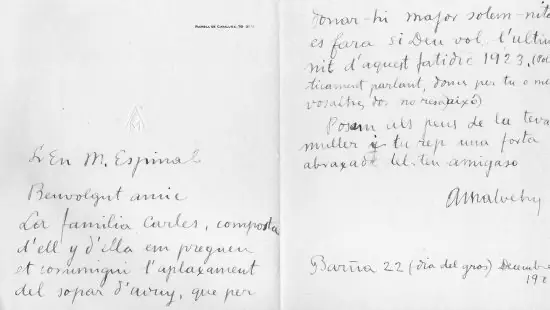 Sr En M. Espinal
Benvolgut amic
La familia Carles, composta
d'ell y d'ella em preguen
et comuniqui l'aplaxament
del sopar d'avuy, que per
donar-hi major solem-nitat
es fara si Deu vol l'ultim
nit d'aquest fatidic 1923. (Poli
ticament parlant, doncs per tu o me
vosaltres dos no resa això)
Posam als peus de la teva
muller y tu rep una forta
abraxada del teu amigaso
Barña 22 (dia del gros) Decembre
192